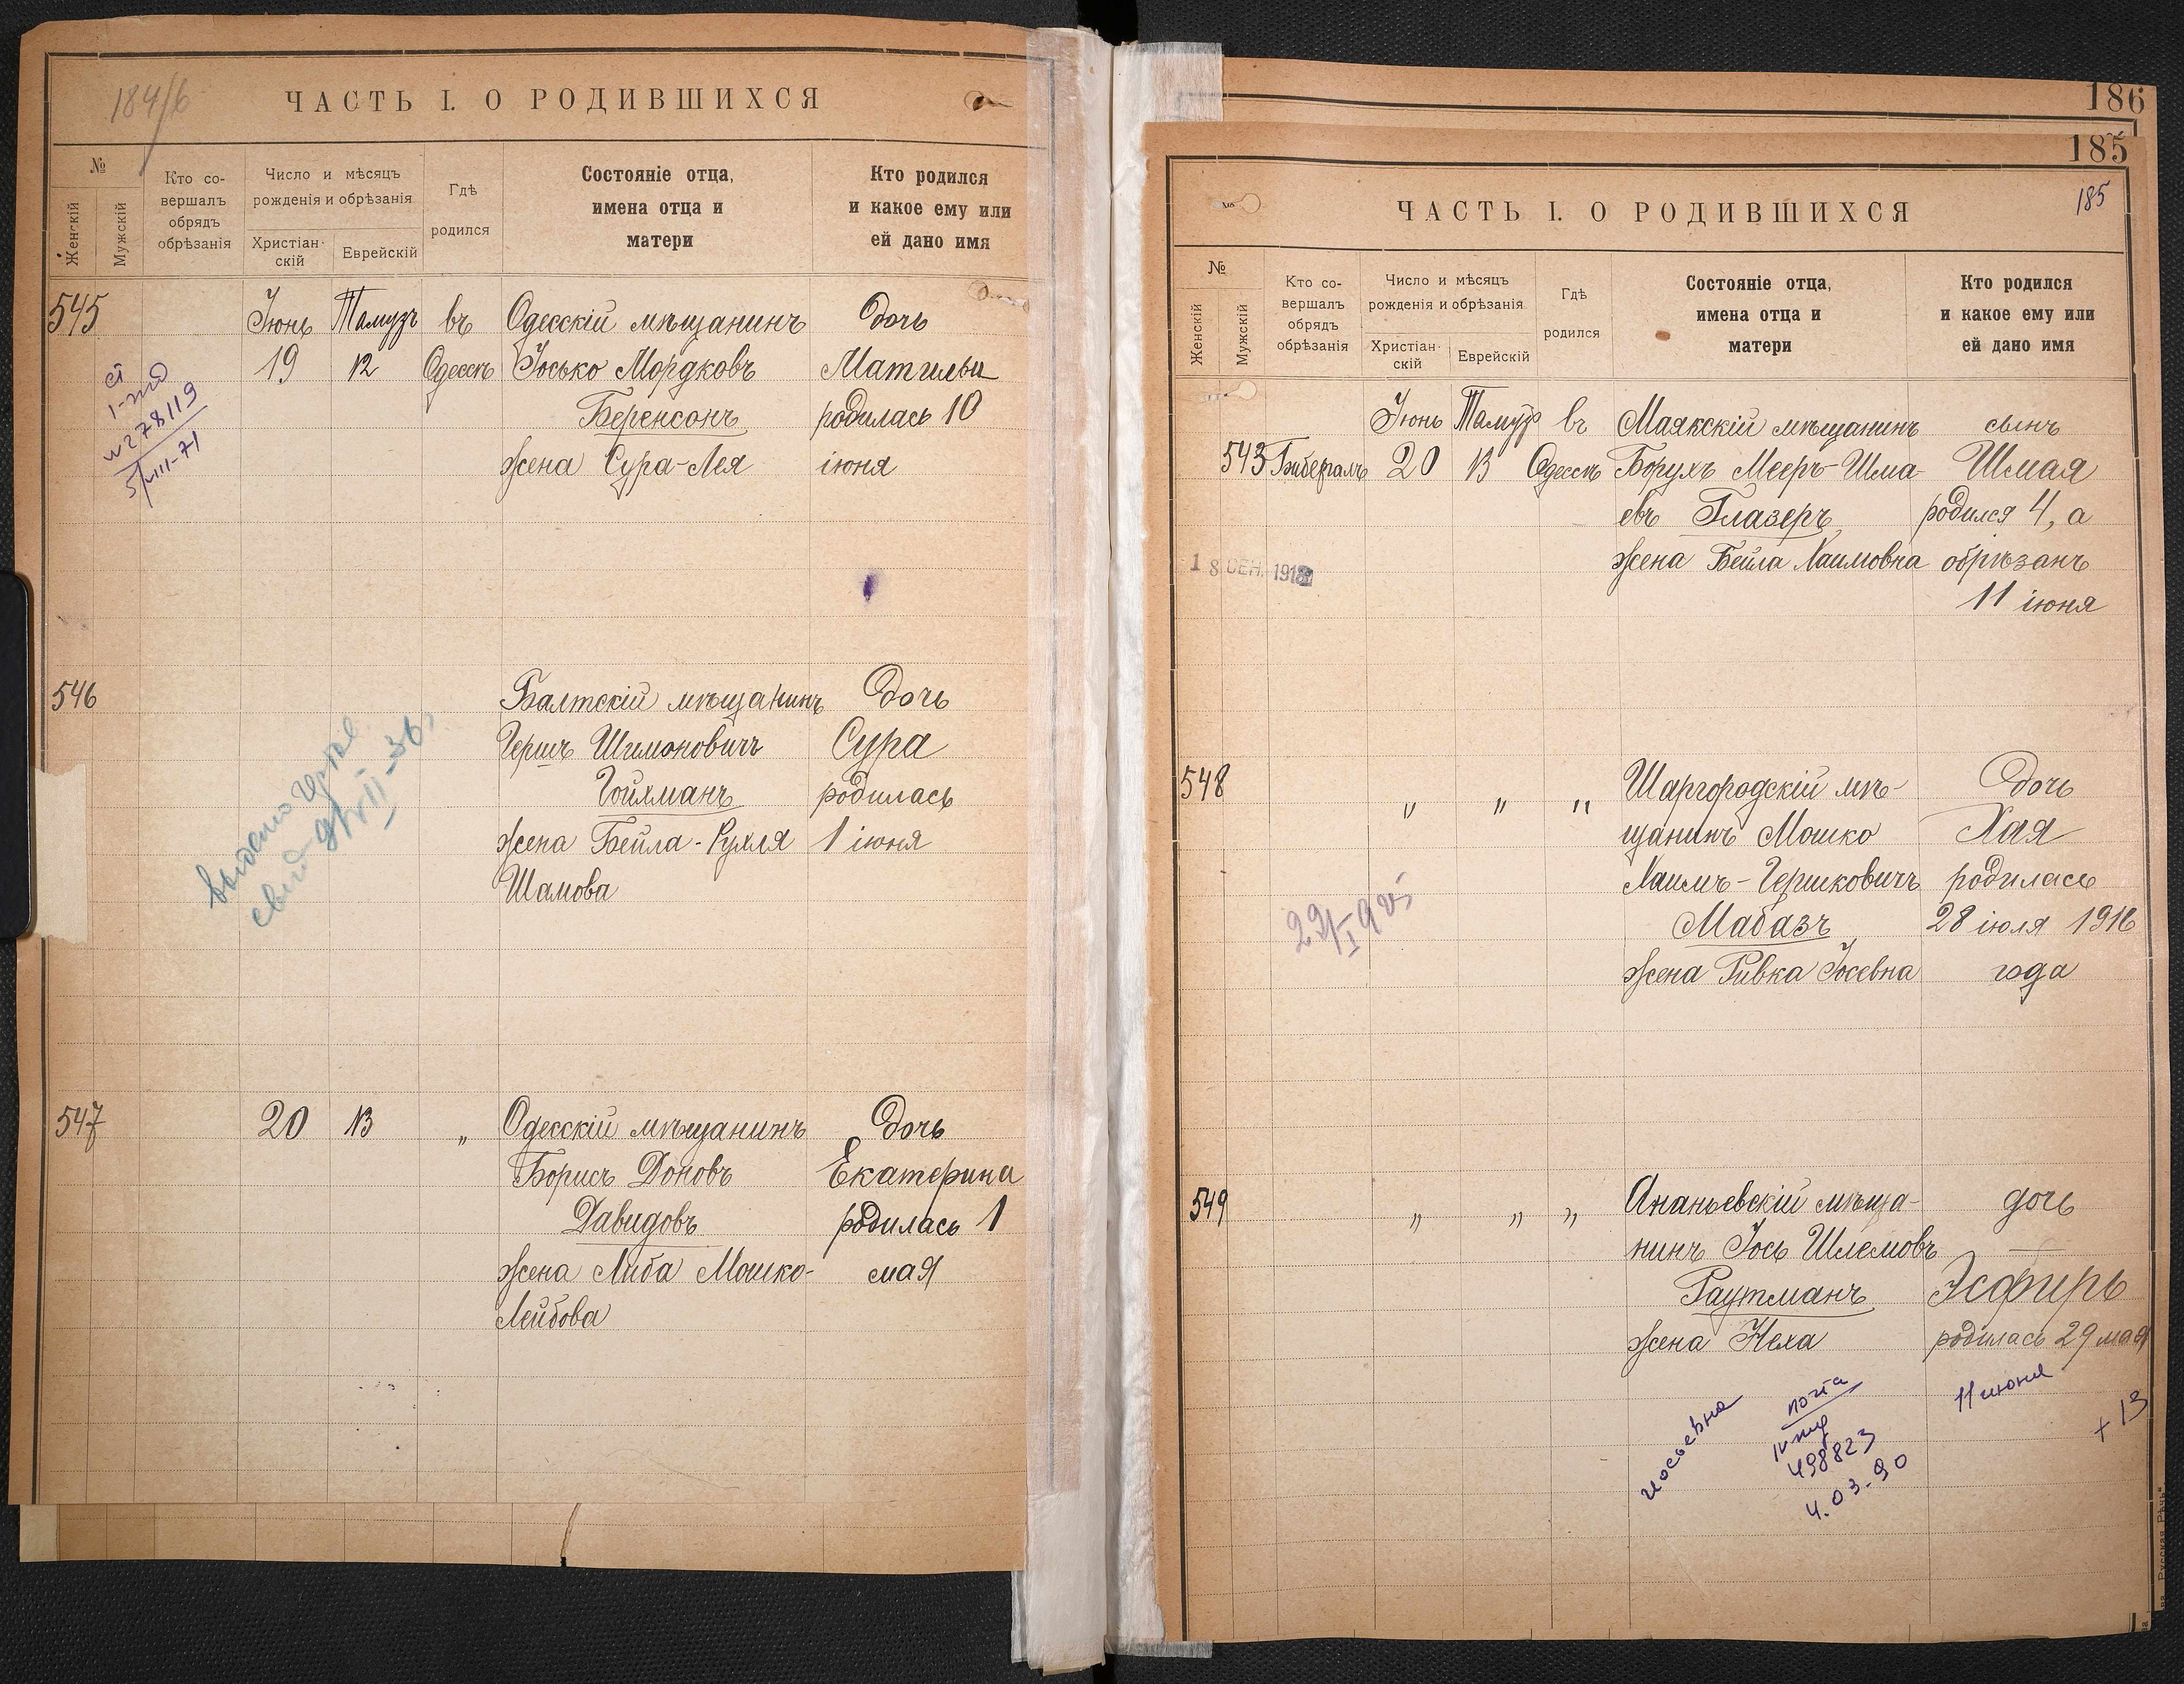 184/6
ЧАСТЬ I. О РОДИВШИХСЯ
№
Женскій
Мужскій
Кто со-
вершалъ
обрядъ
обрѣзанія
Число и мѣсяцъ
рожденія и обрѣзанія
Христіан-
скій
Еврейскій
Гдѣ
родился
Состояніе отца,
имена отца и
матери
Кто родился
и какое ему или
ей дано имя
545
Іюнь Тамузъ въ Одесскій мѣщанинъ дочь
19 12 Одессѣ Іосько Мордковъ
Беренсонъ родилась 10
жена Сура-Лея іюня
278119
5/VIII-71
546 Балтскій мѣщанинъ дочь
Гершъ Шимоновичъ Сура
Гойхманъ родилась
жена Бейла-Рухля 1 іюня
Шамова
выдано
547 20 13 „ Одесскій мѣщанинъ дочь
Борисъ Доновъ Екатерина
Давидовъ родилась 1
жена Либа Мошко- мая
Лейбова
186
185
185
№
ЧАСТЬ I. О РОДИВШИХСЯ
№
Женскій
Мужскій
Кто со-
вершалъ
обрядъ
обрѣзанія
Число и мѣсяцъ
рожденія и обрѣзанія
Христіан-
скій
Еврейскій
Гдѣ
родился
Состояніе отца,
имена отца и
матери
Кто родился
и какое ему или
ей дано имя
Іюнь Тамузъ въ Маякскій мѣщанинъ сынъ
543 Гибералъ 20 13 Одессѣ Борухъ Мееръ-Шма- Шмая
евъ Глазеръ родился 4, а
жена Бейла Хаимовна обрѣзанъ
11 іюня
18 СЕН. 1918
548 „ „ „ Шаргородскій мѣ- дочь
щанинъ Мошко Хая
Хаимъ-Гершковичъ родилась
Мабазъ 28 іюля 1916
жена Ривка Іосевна года
549 „ „ „ Ананьевскій мѣща- дочь
нинъ Іось Шлемовъ
Раутманъ Эсфирь
жена Неха родилась 29 мая
11 июня
иосьевна
почта
498823
4.03.90
+ 13